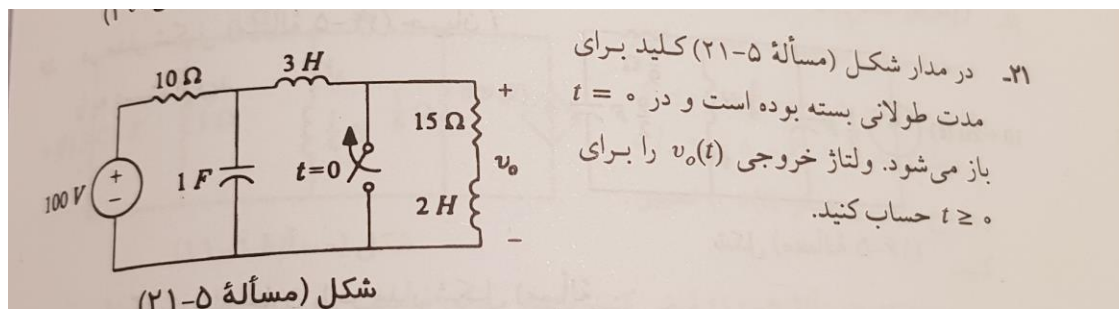 ۲۱ـ در مدار شکل (مسألهٔ ۵-۲۱) کلید برای
مدت طولانی بسته بوده است و در t = ۰
باز می‌شود. ولتاژ خروجی v₀(t) را برای
t ≥ ۰ حساب کنید.
10 Ω
3 H
+
15 Ω
v₀
100 V
+
−
1 F
t=0
2 H
−
شکل (مسألهٔ ۵-۲۱)